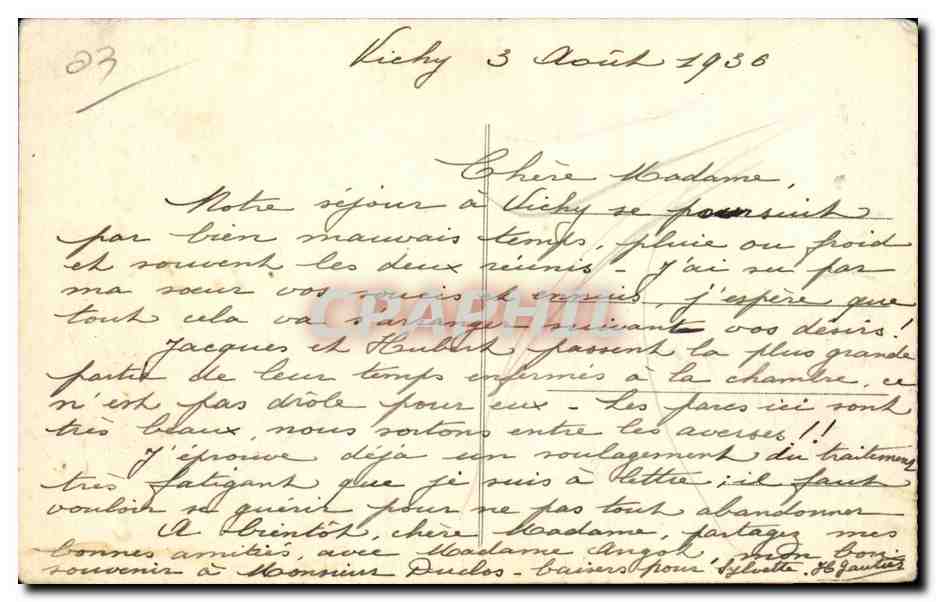 03
Vichy 3 Août 1936
Chère Madame,
Notre séjour à Vichy se poursuit
par bien mauvais temps, pluie ou froid
et souvent les deux réunis - J'ai su par
ma sœur vos soucis et ennuis, j'espère que
tout cela va s'arranger suivant vos désirs!
Jacques et Hubert passent la plus grande
partie de leur temps enfermés à la chambre, ce
n'est pas drôle pour eux - Les parcs ici sont
très beaux, nous sortons entre les averses!!
J'éprouve déjà un soulagement du traitement
très fatigant que je suis à lettre; il faut
vouloir se guérir pour ne pas tout abandonner
A bientôt, chère Madame, partagez mes
bonnes amitiés, avec Madame Angot, mon bon
souvenir à Monsieur Duclos - baisers pour Sylvette. H Gautier
CPAPHIL